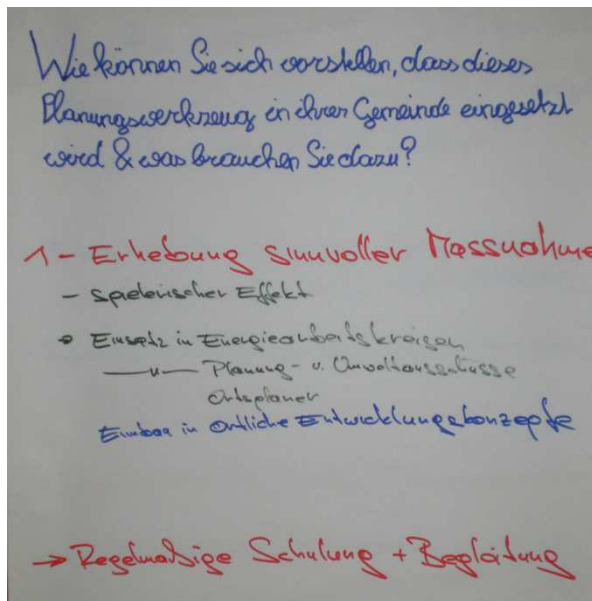 Wie können Sie sich vorstellen, dass dieses
Planungswerkzeug in ihrer Gemeinde eingesetzt
wird & was brauchen Sie dazu?
1 - Erhebung sinnvoller Massnahme
- spielerischer Effekt
• Einsatz in Energiearbeitskreisen
—"— Planung- u. Umweltausschüsse
Ortsplaner
Einbau in örtliche Entwicklungskonzepte
→ Regelmäßige Schulung + Begleitung